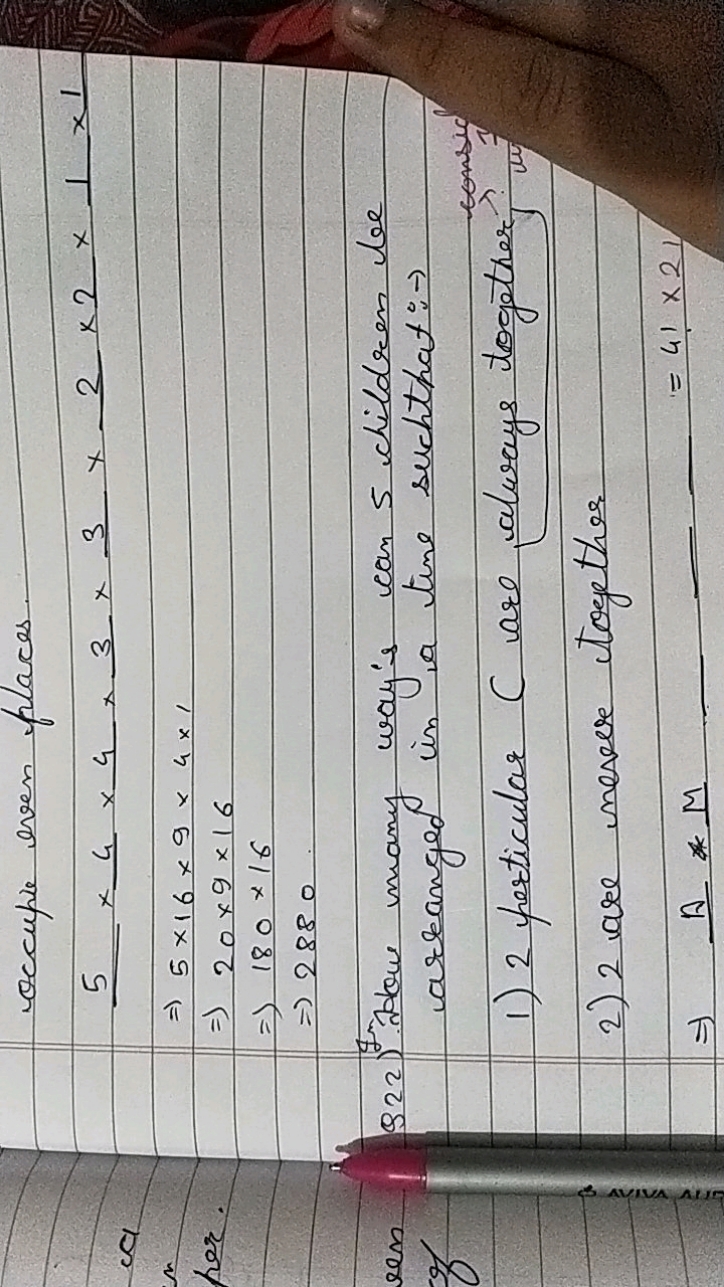 occupie even places.
5 × 4 × 4 × 3 × 3 × 2 × 2 × 1 × 1
=) 5 × 16 × 9 × 4 × 1
=) 20 × 9 × 16
=) 180 × 16
=) 2880.
Q22) In How many way's can 5 children be
arranged in a line suchthat :-)
1) 2 perticular C are always together
2) 2 are never together
=) A * M = 4! × 2!
per.